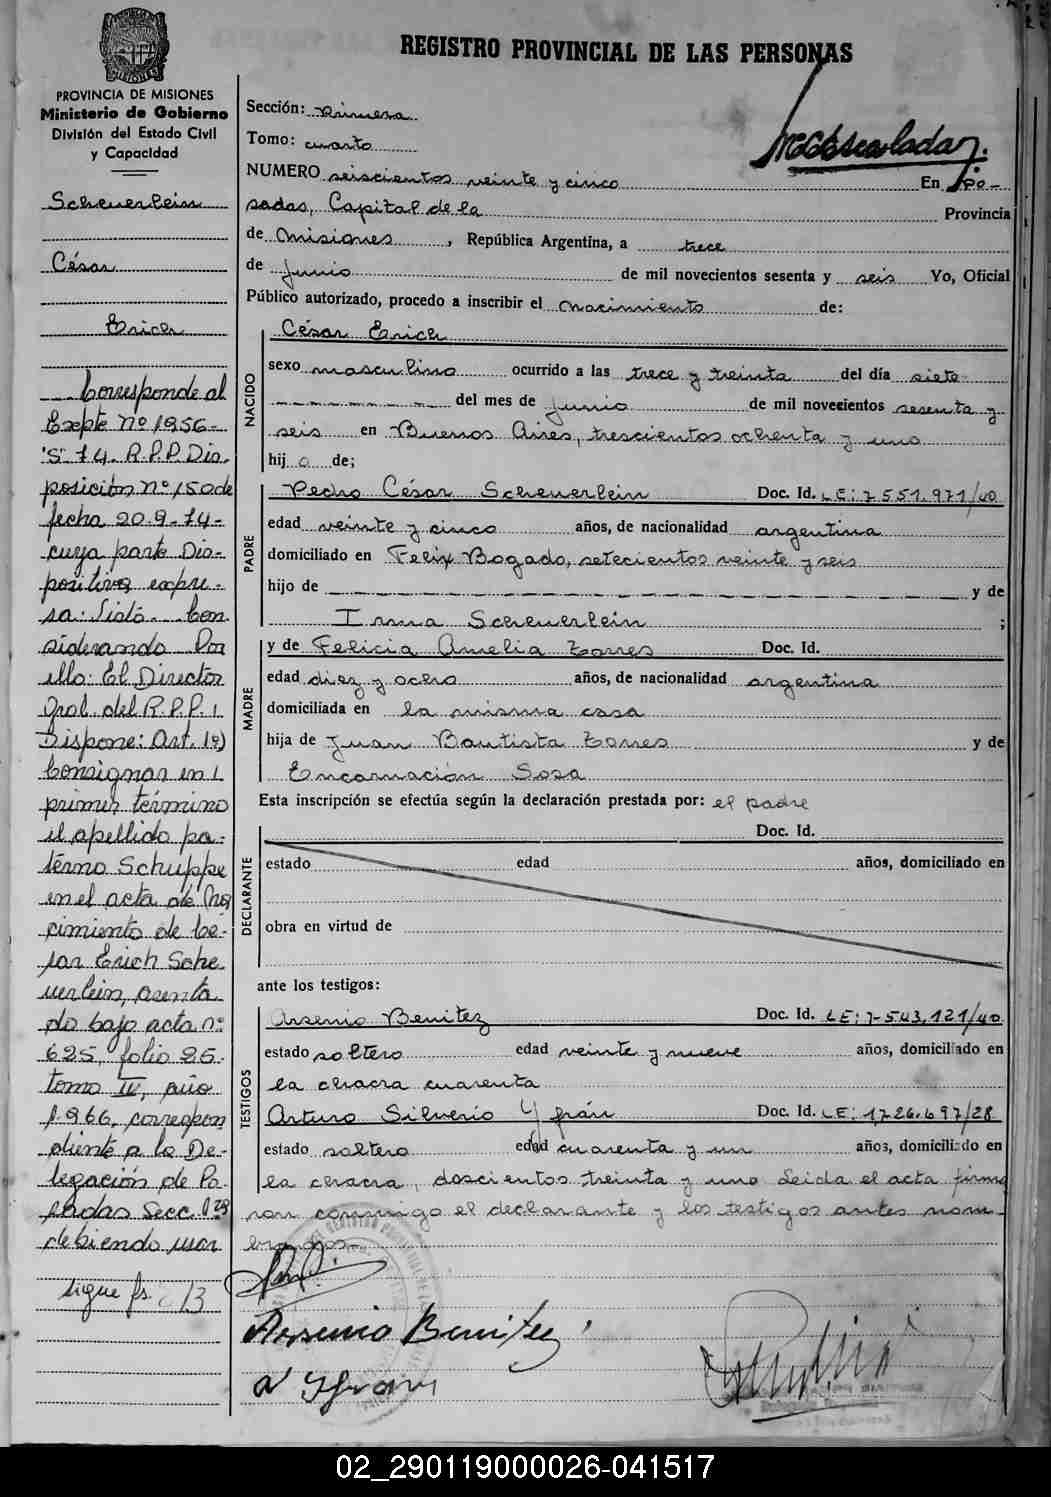 REGISTRO PROVINCIAL DE LAS PERSONAS
PROVINCIA DE MISIONES
Ministerio de Gobierno
División del Estado Civil
y Capacidad
Scheuerlein
César
Erich
Corresponde al
Expte Nº 1956-
"S" 74. R.P.P. Dis.
posición nº 150 de
fecha 20-9-74-
cuya parte Dis-
positiva expre-
sa: Visto... Con
siderando Por
ello: El Director
Gral. del R.P.P.
Dispone: Art. 1º)
Consignar en
primer término
el apellido pa-
terno Schuppe
en el acta de Na
cimiento de Cé-
sar Erich Sche
uerlein, asenta
do bajo acta nº
625, folio 25
tomo IV, año
1966, correspon
diente a la De-
legación de Po
sadas Secc. 1ra
debiendo usar
sigue fs. 213
Sección: Primera
Tomo: cuarto
NUMERO seiscientos veinte y cinco En Po-
sadas, Capital de la Provincia
de Misiones, República Argentina, a trece
de Junio de mil novecientos sesenta y seis Yo, Oficial
Público autorizado, procedo a inscribir el nacimiento de:
NACIDO
César Erich
sexo masculino ocurrido a las trece y treinta del día siete
del mes de Junio de mil novecientos sesenta y
seis en Buenos Aires, trescientos ochenta y uno
hijo de;
PADRE
Pedro César Scheuerlein Doc. Id. LE: 7551.971/40
edad veinte y cinco años, de nacionalidad argentina
domiciliado en Felix Bogado, setecientos veinte y seis
hijo de y de
Irma Scheuerlein ;
MADRE
y de Felicia Amelia Torres Doc. Id.
edad diez y ocho años, de nacionalidad argentina
domiciliada en la misma casa
hija de Juan Bautista Torres y de
Encarnación Sosa
Esta inscripción se efectúa según la declaración prestada por: el padre
DECLARANTE
Doc. Id.
estado edad años, domiciliado en
obra en virtud de
ante los testigos:
TESTIGOS
Arsenio Benitez Doc. Id. LE: 7-543.121/40
estado soltero edad veinte y nueve años, domiciliado en
la chacra cuarenta
Arturo Silverio Yfrán Doc. Id. LE: 1.726.697/28
estado soltero edad cuarenta y un años, domiciliado en
la chacra, doscientos treinta y uno Leida el acta firma
ron conmigo el declarante y los testigos antes nom-
brados-
Arsenio Benitez
A Yfran
02_290119000026-041517